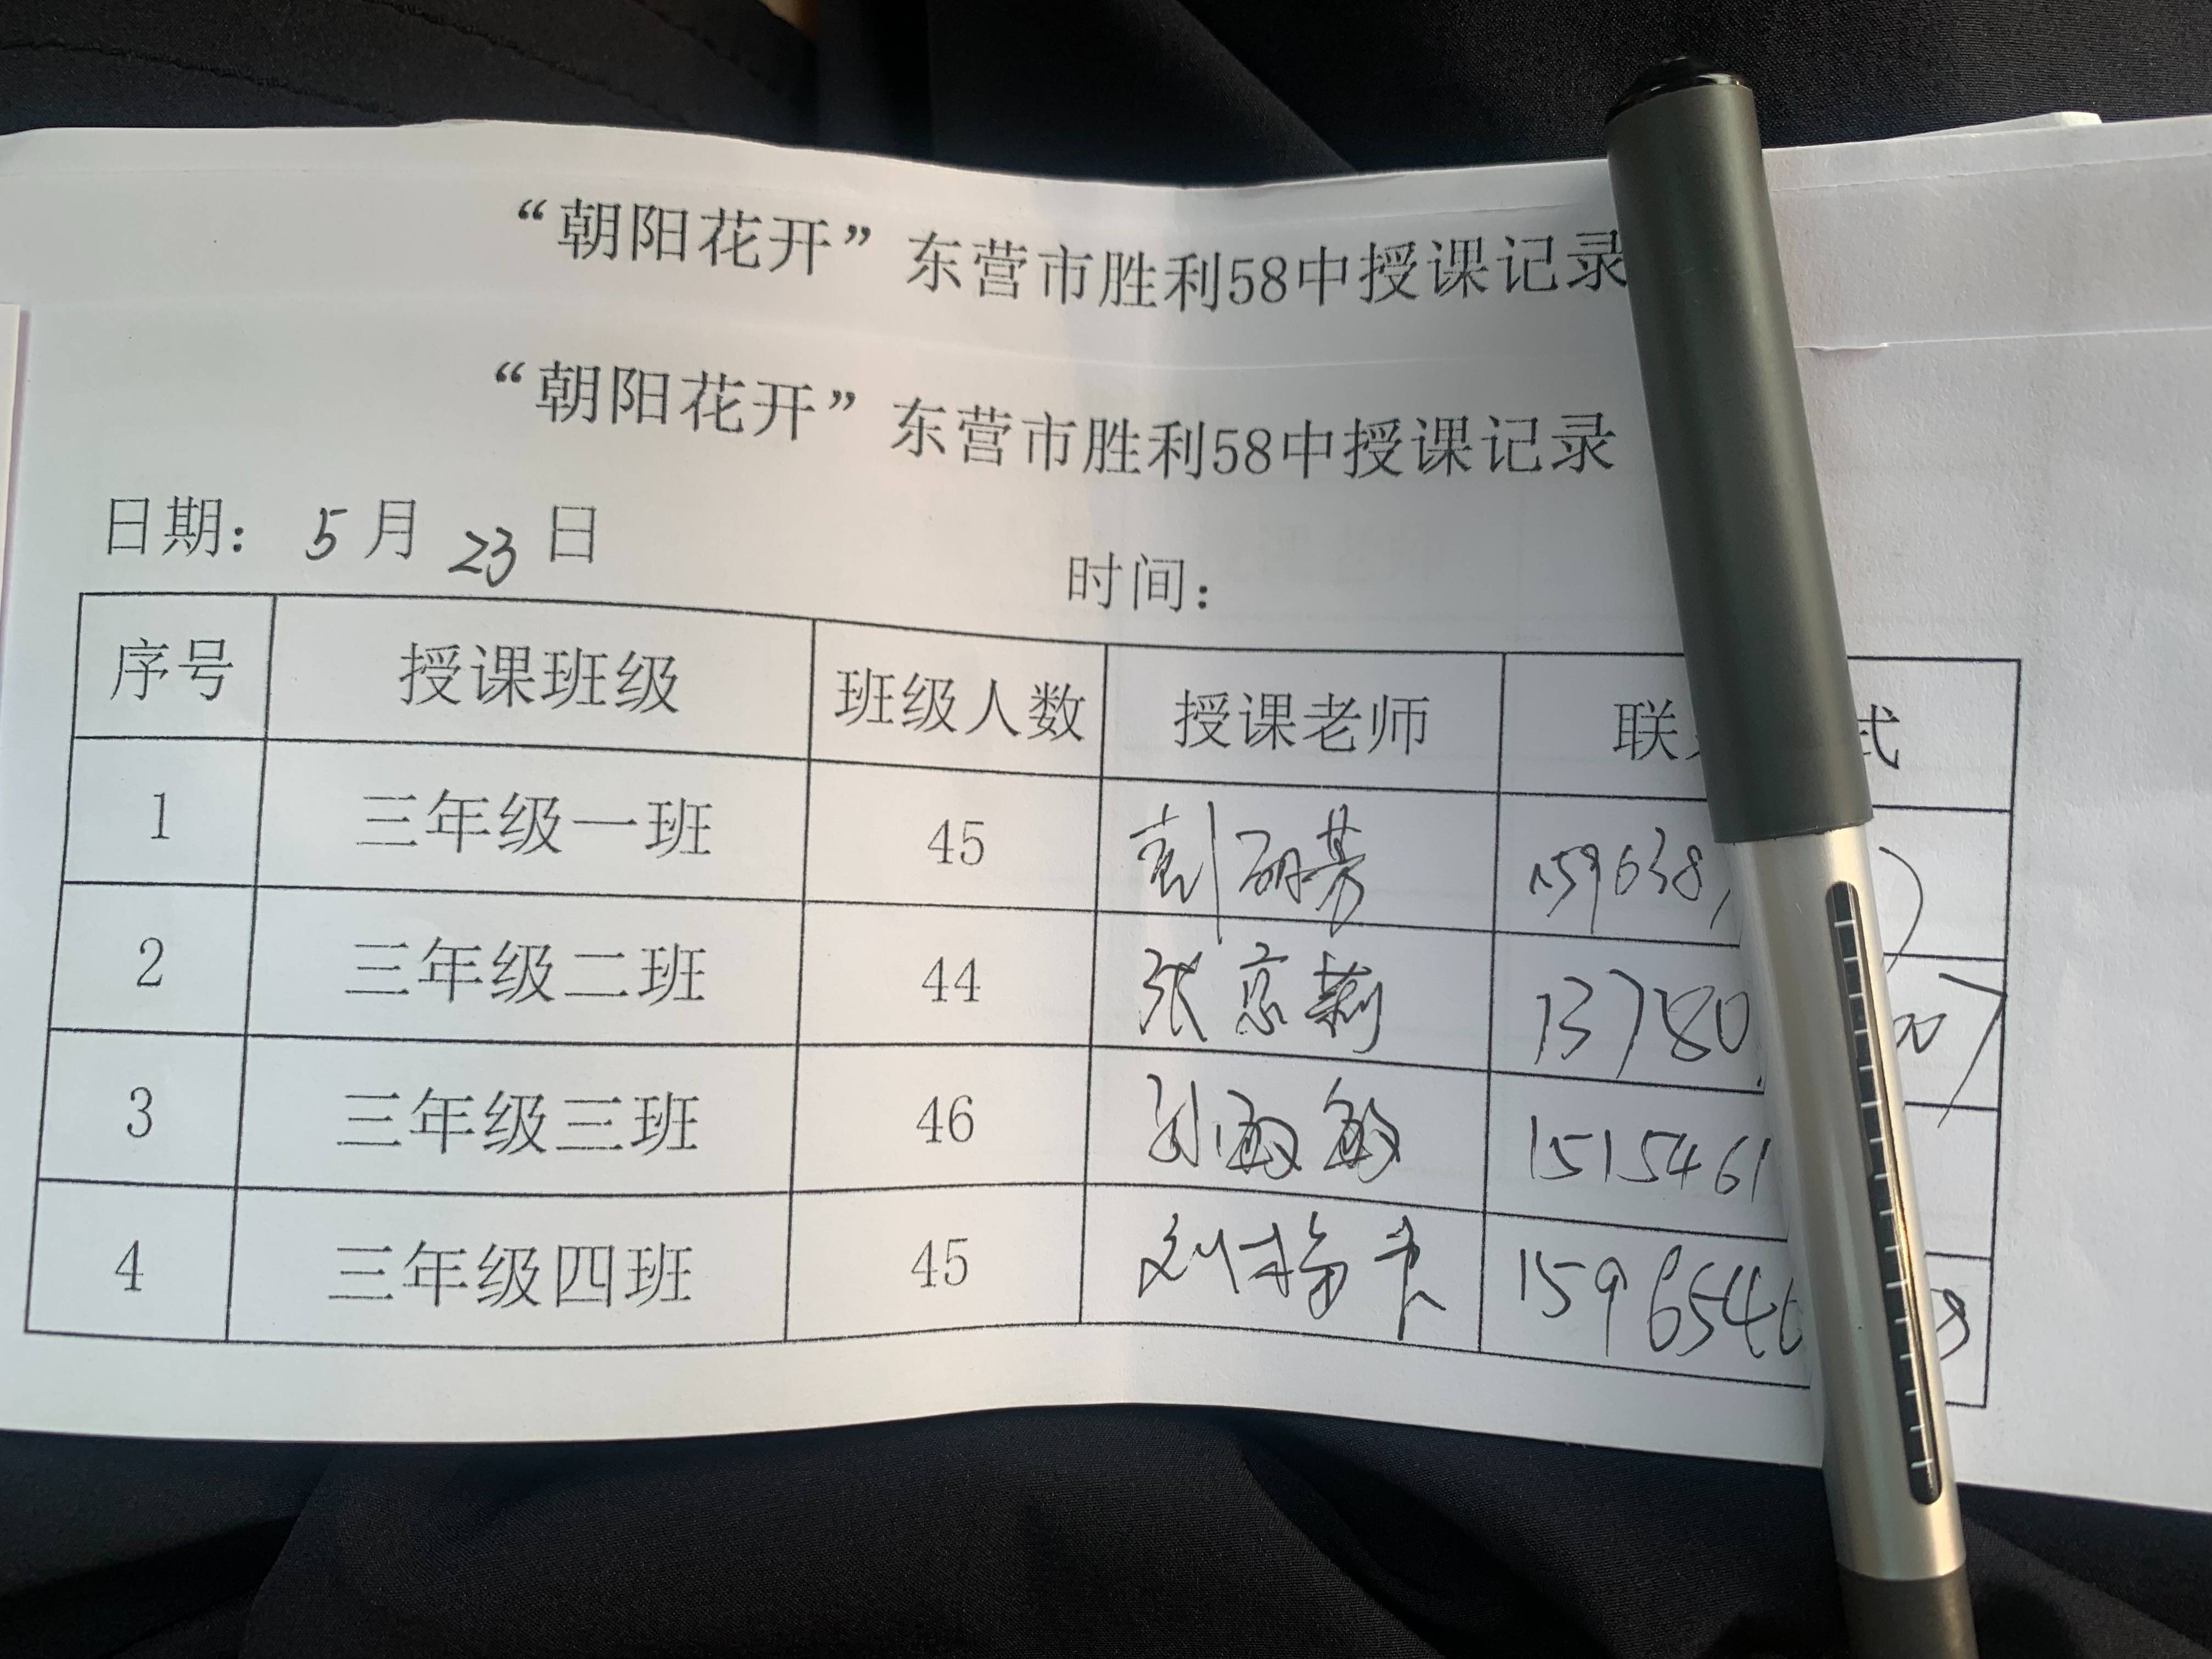 “朝阳花开”东营市胜利58中授课记录
“朝阳花开”东营市胜利58中授课记录
日期： 5 月 23 日 时间：
序号 授课班级 班级人数 授课老师 联 式
1 三年级一班 45 159638
2 三年级二班 44 张 莉 13780
3 三年级三班 46 1515461
4 三年级四班 45 刘 1596546